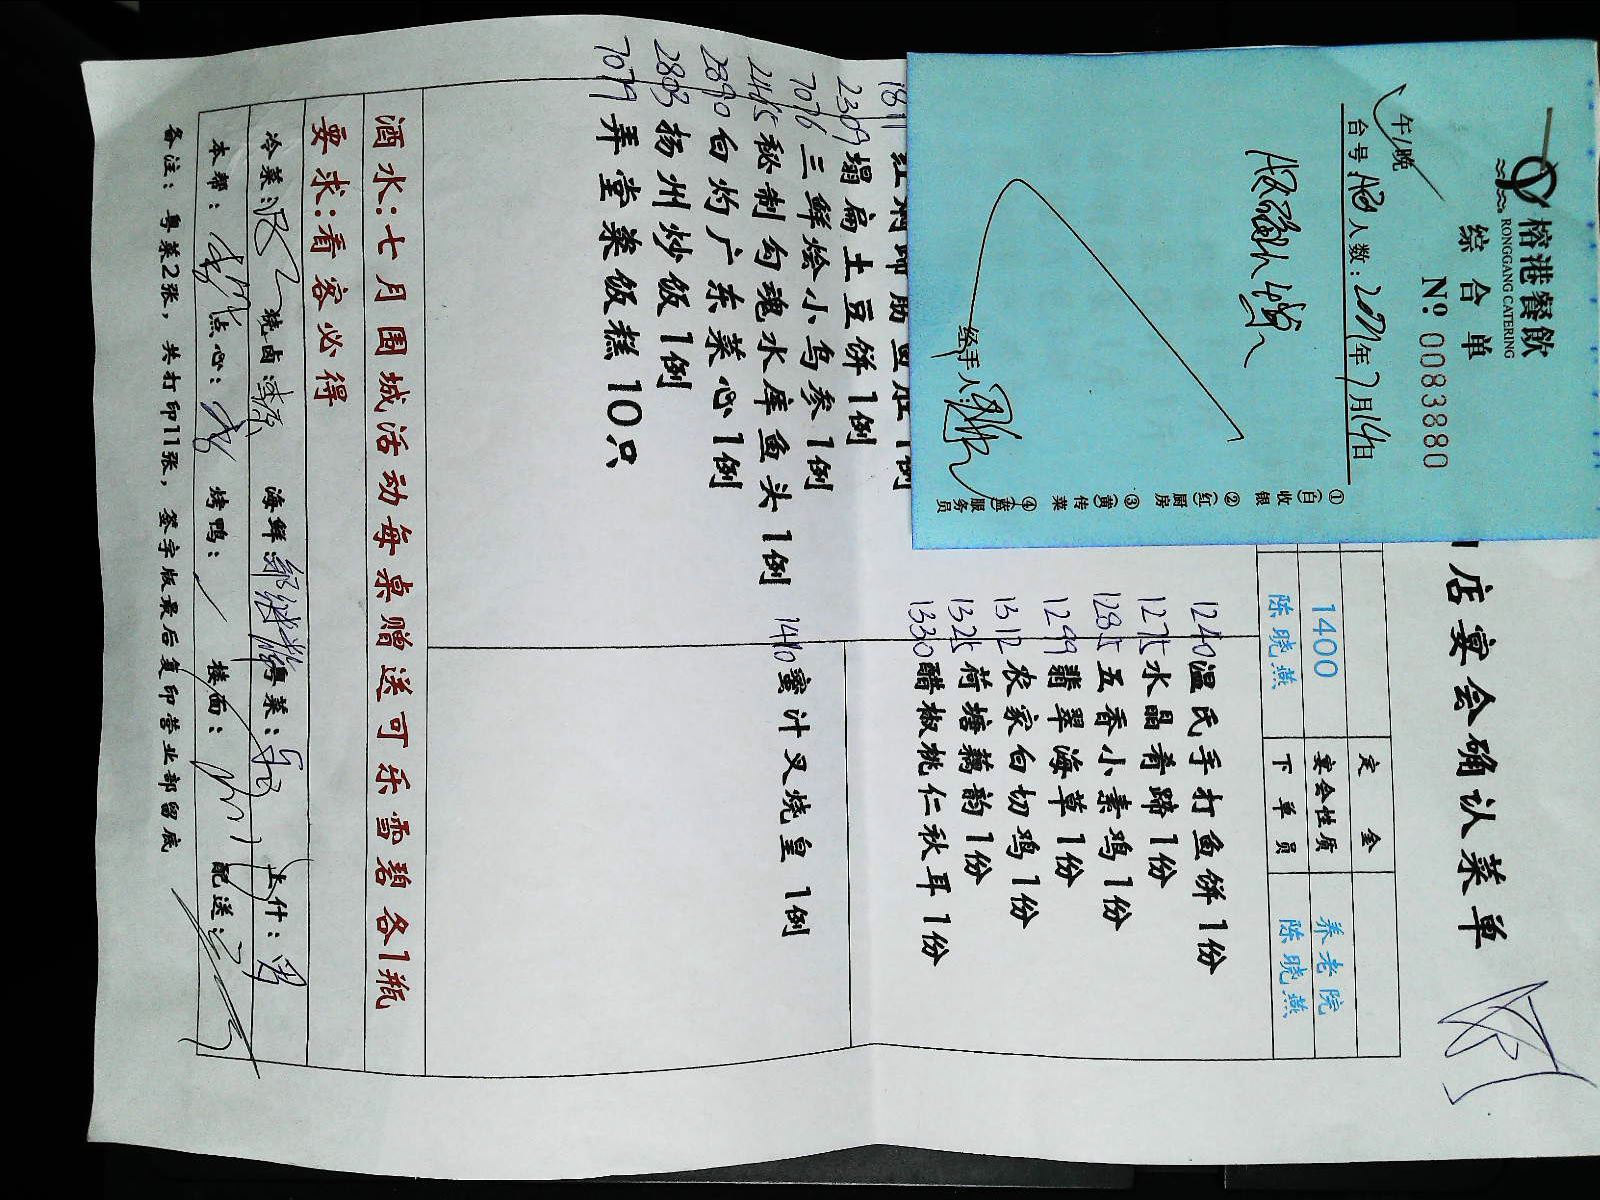 榕港餐飲
RONGGANG CATERING
综合单
№ 0083880
午/晚
台号 人数: 2021年7月14日
①(白)收银
②(红)厨房
③(黄)传菜
④(蓝)服务员
经手人
店宴会确认菜单
定金
1400 宴会性质 养老院
陈晓燕 下单员 陈晓燕
1240 温氏手打鱼饼1份
1275 水晶肴蹄1份
1285 五香小素鸡1份
1299 翡翠海草1份
1312 农家白切鸡1份
1325 荷塘藕韵1份
1330 醋椒桃仁秋耳1份
2309 塌扁土豆饼1例
7076 三鲜烩小乌参1例
2465 秘制勾魂水库鱼头1例
1410 蜜汁叉烧皇1例
2390 白灼广东菜心1例
2803 扬州炒饭1例
7079 弄堂菜饭糕10只
酒水:七月围城活动每桌赠送可乐雪碧各1瓶
要求:看客必得
冷菜: 烧卤: 海鲜: 粤菜: 上什:
本帮: 点心: 烤鸭: 楼面: 配送:
备注:粤菜2张,共打印11张,签字版最后复印营业部留底